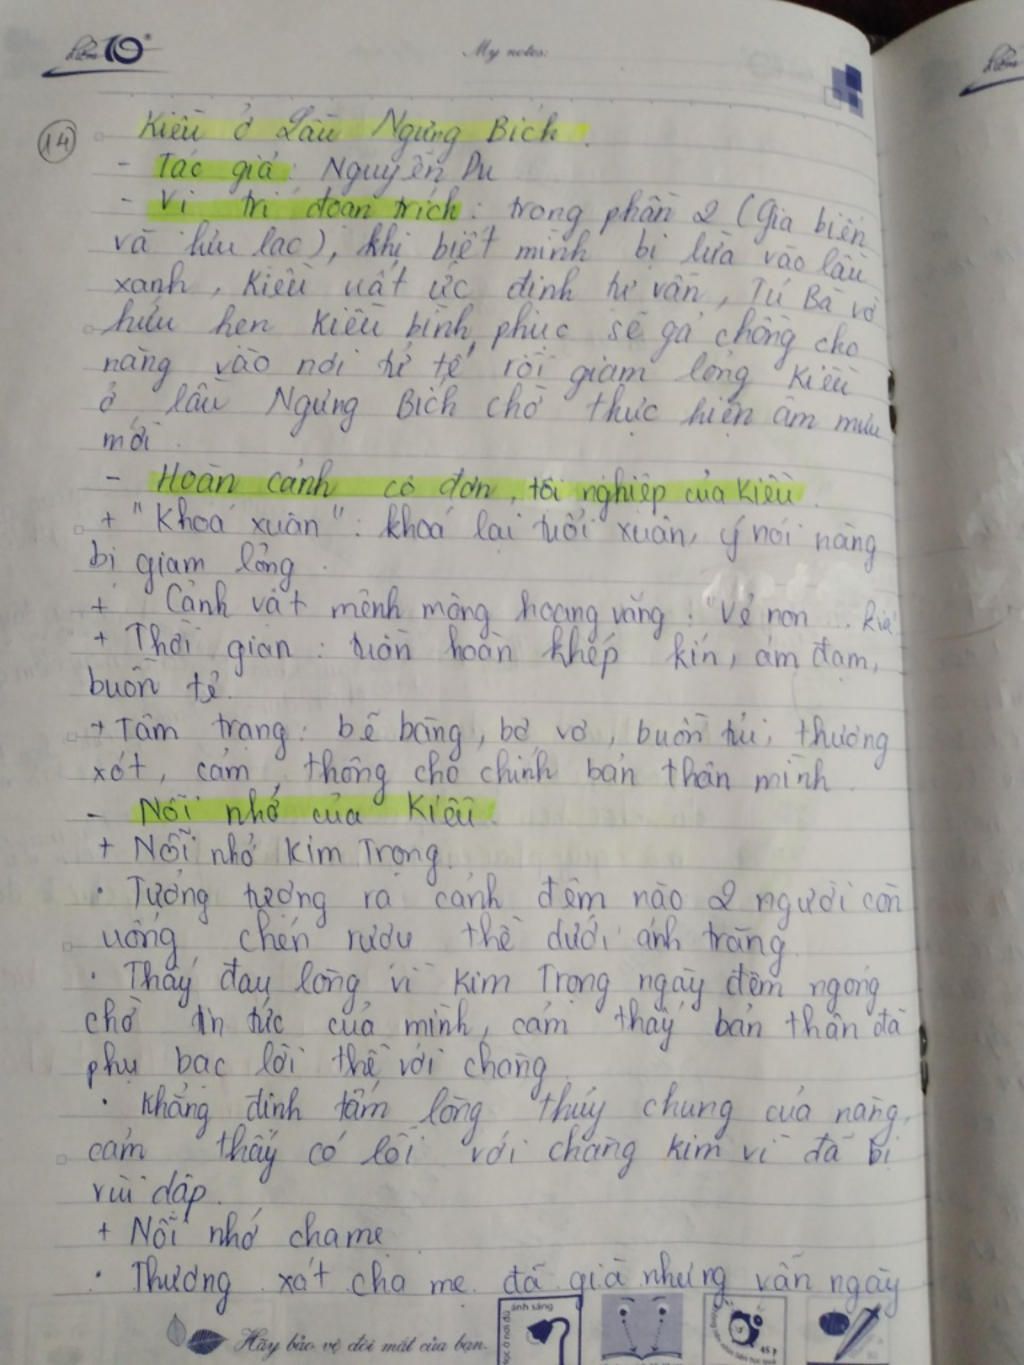 My notes:
14
Kiều ở Lầu Ngưng Bích.
- Tác giả: Nguyễn Du
- Vị trí đoạn trích: trong phần 2 (Gia biến
và lưu lạc), khi biết mình bị lừa vào lầu
xanh, Kiều uất ức định tự vẫn, Tú Bà vờ
hứa hẹn Kiều bình phục sẽ gả chồng cho
nàng vào nơi tử tế rồi giam lỏng Kiều
ở lầu Ngưng Bích chờ thực hiện âm mưu
mới.
- Hoàn cảnh cô đơn, tội nghiệp của Kiều.
+ "Khoá xuân": khoá lại tuổi xuân, ý nói nàng
bị giam lỏng.
+ Cảnh vật mênh mông hoang vắng: "Vẻ non ..
+ Thời gian: tuần hoàn khép kín, ảm đạm,
buồn tẻ.
+ Tâm trạng: bẽ bàng, bơ vơ, buồn tủi, thương
xót, cảm thông cho chính bản thân mình.
- Nỗi nhớ của Kiều.
+ Nỗi nhớ Kim Trọng.
· Tưởng tượng ra cảnh đêm nào 2 người còn
uống chén rượu thề dưới ánh trăng
· Thấy đau lòng vì Kim Trọng ngày đêm ngóng
chờ tin tức của mình, cảm thấy bản thân đã
phụ bạc lời thề với chàng
· Khẳng định tấm lòng thủy chung của nàng,
cảm thấy có lỗi với chàng Kim vì đã bị
vùi dập.
+ Nỗi nhớ cha mẹ
· Thương xót cha mẹ đã già nhưng vẫn ngày
Hãy bảo vệ đôi mắt của bạn.
ánh sáng
45 p